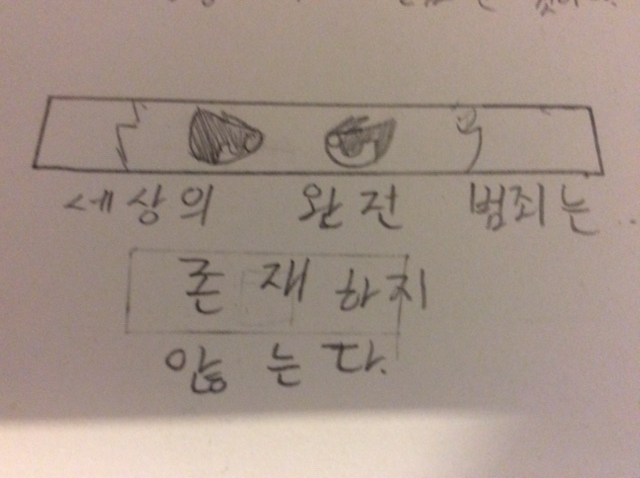 세상의 완전 범죄는..
존재하지
않는다.